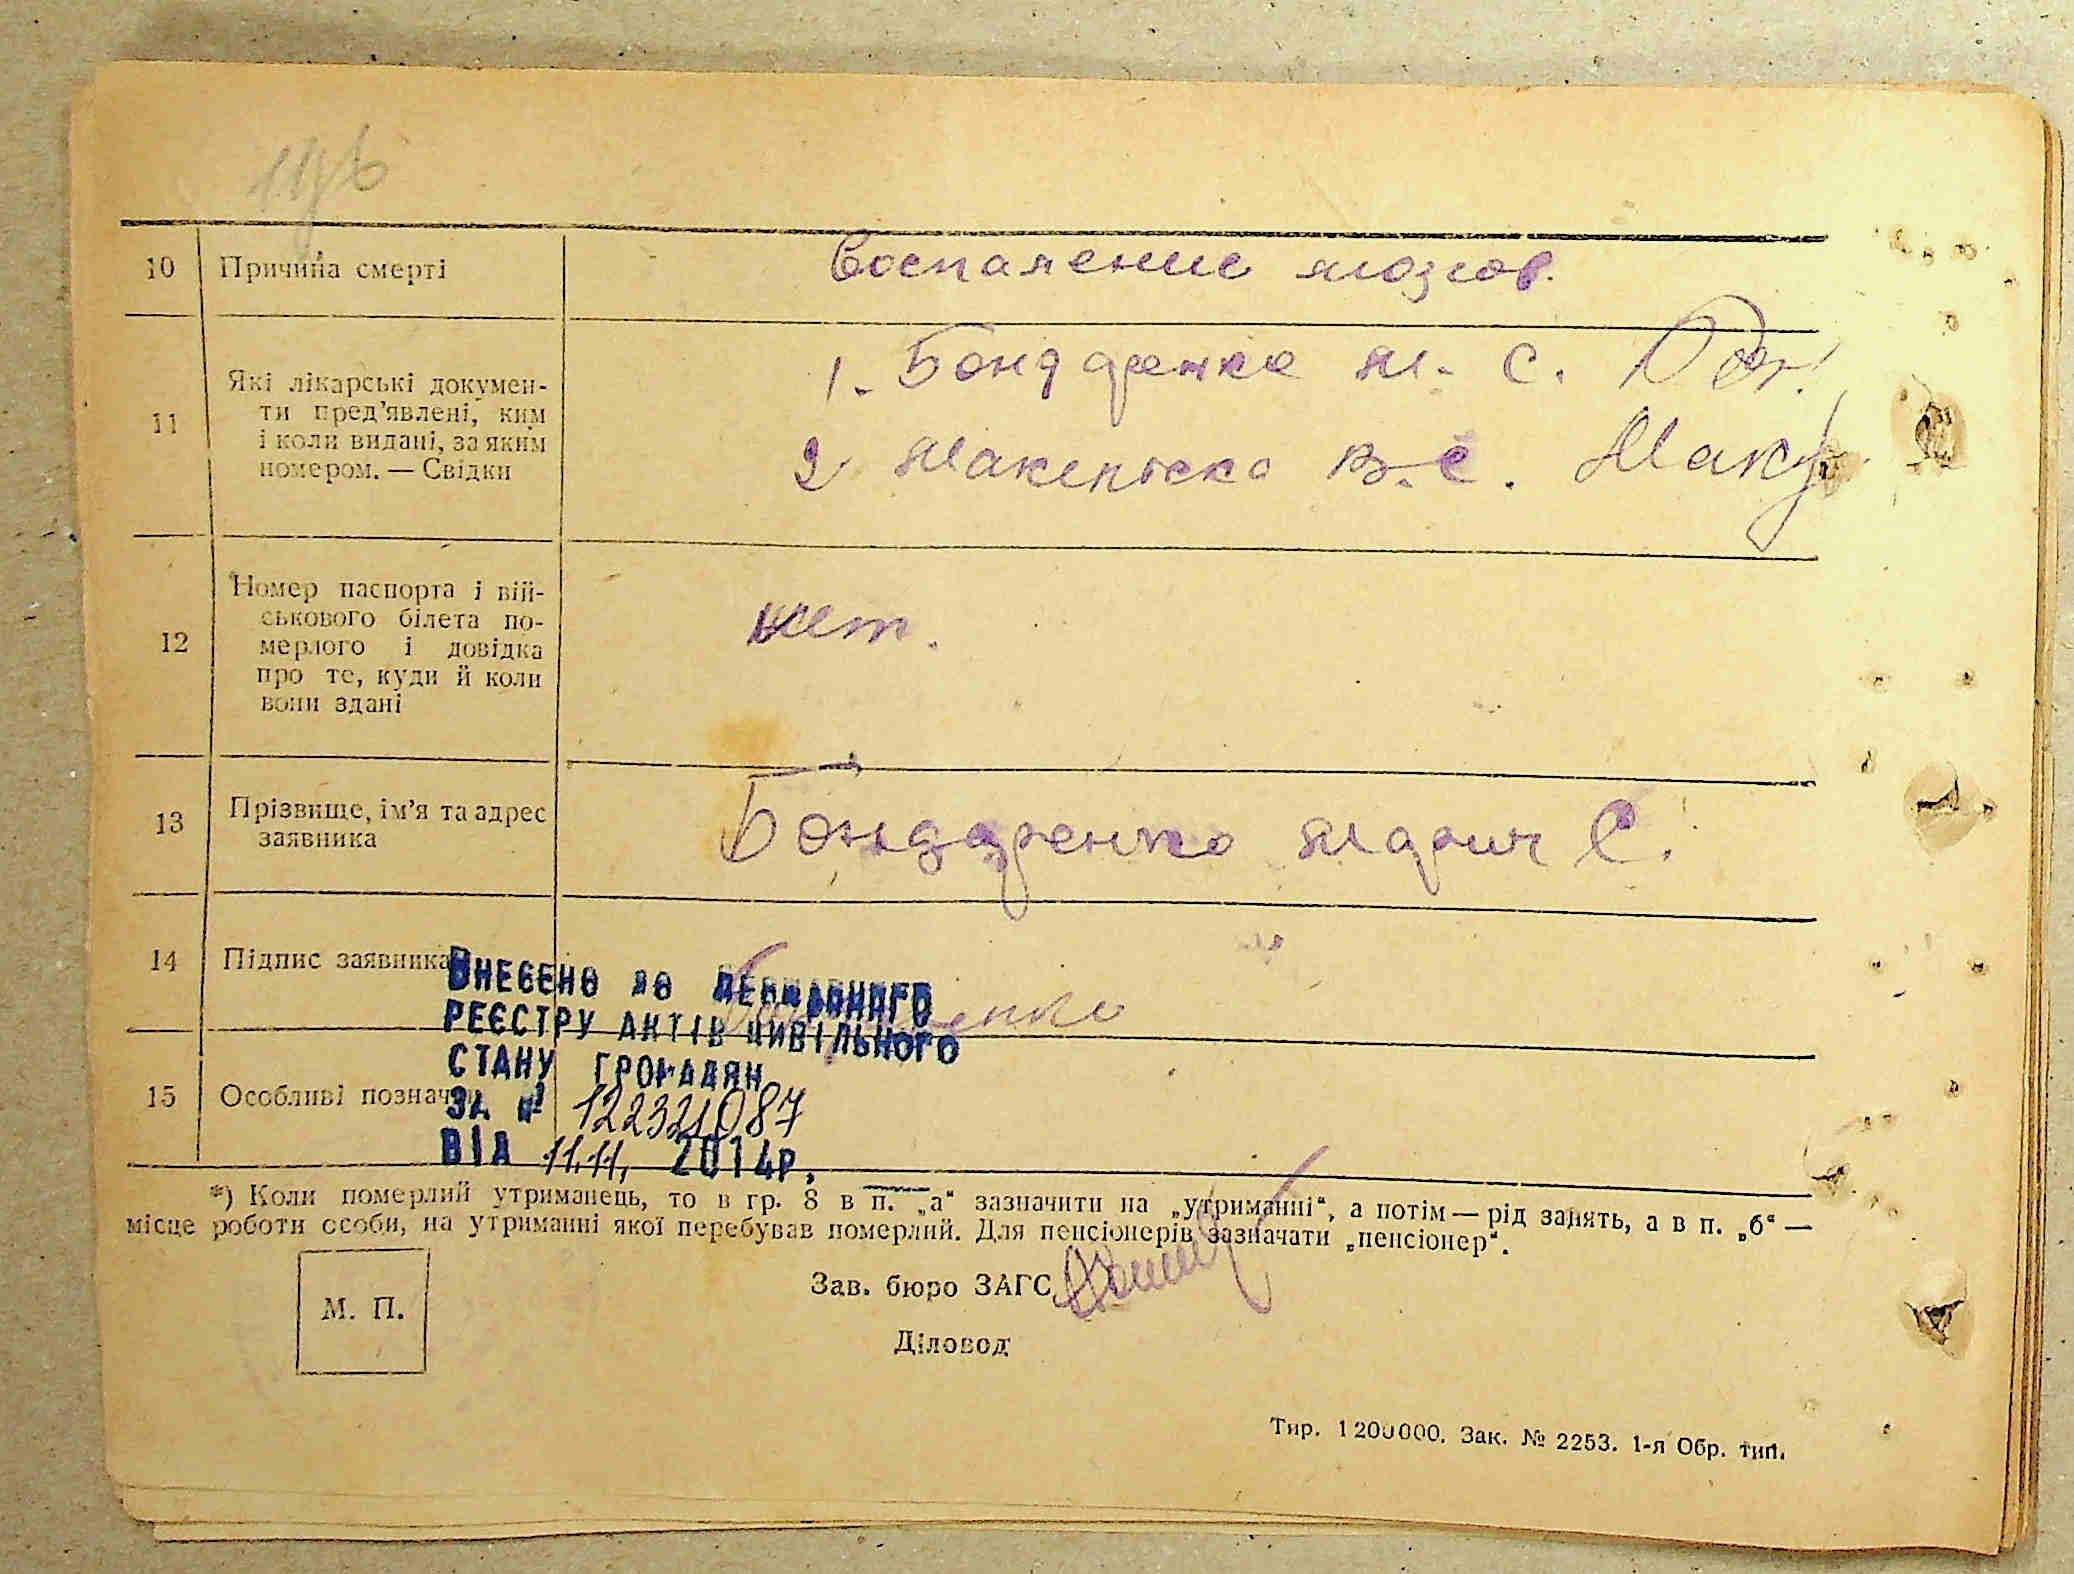 10 Причина смерті Воспаление мозгов.
11 Які лікарські докумен-
ти пред'явлені, ким
і коли видані, за яким
номером. — Свідки
1. Бондаренко М. С.
2 В. С.
12 Номер паспорта і вій-
ськового білета по-
мерлого і довідка
про те, куди й коли
вони здані
нет.
13 Прізвище, ім'я та адрес
заявника
Бондаренко С.
14 Підпис заявника
15 Особливі познач
ВНЕСЕНО ДО ДЕРЖАВНОГО
РЕЄСТРУ АКТІВ ЦИВІЛЬНОГО
СТАНУ ГРОМАДЯН
ЗА № 122321087
ВІД 11.11. 2014р.
*) Коли померлий утриманець, то в гр. 8 в п. „а“ зазначити на „утриманні“, а потім — рід занять, а в п. „б“ —
місце роботи особи, на утриманні якої перебував померлий. Для пенсіонерів зазначати „пенсіонер“.
Зав. бюро ЗАГС
М. П.
Діловод
Тир. 1200000. Зак. № 2253. 1-я Обр. тип.